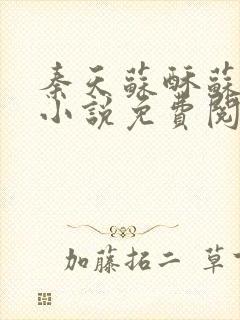 秦天蘇酥蘇
小說免費閱
加藤拓二 草